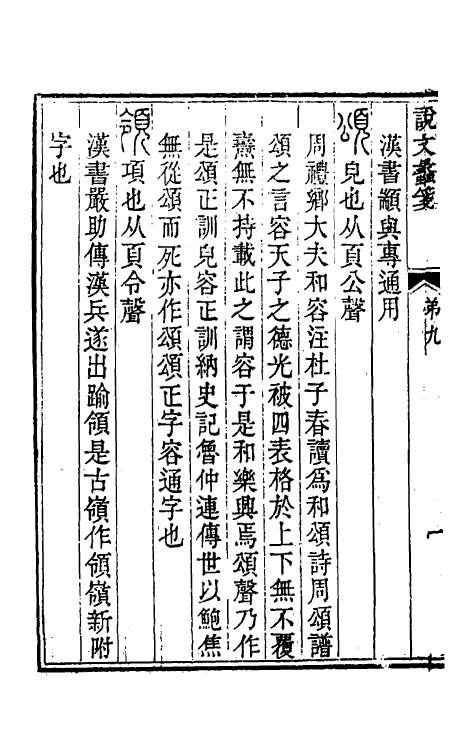 說文蠡箋
第九
一
漢書顓與專通用
頌皃也从頁公聲
周禮鄉大夫和容注杜子春讀爲和頌詩周頌譜
頌之言容天子之德光被四表格於上下無不覆
燾無不持載此之謂容于是和樂興焉頌聲乃作
是頌正訓皃容正訓納史記魯仲連傳世以鮑焦
無從頌而死亦作頌頌正字容通字也
領項也从頁令聲
漢書嚴助傳漢兵遂出踰領是古嶺作領嶺新附
字也